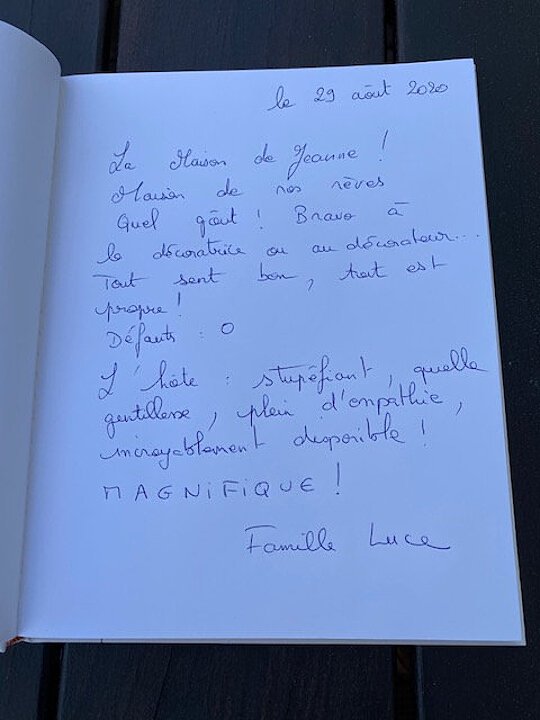 le 29 août 2020
La Maison de Jeanne !
Maison de nos rêves
Quel goût ! Bravo à
la décoratrice ou au décorateur...
Tout sent bon, tout est
propre !
Défauts : 0
L'hôte : stupéfiant, quelle
gentillesse, plein d'empathie,
incroyablement disponible !
MAGNiFiQUE !
Famille Luce